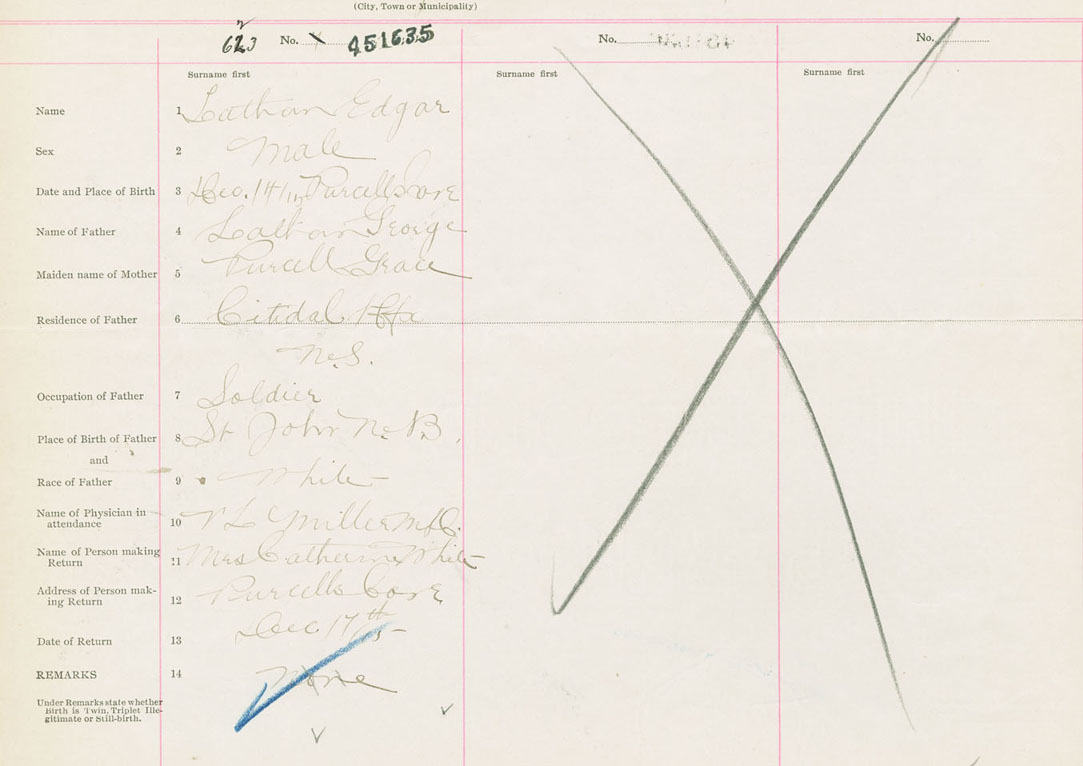 (City, Town or Municipality)
623 No. 451635 No. No.
Surname first Surname first Surname first
Name 1 Lathan Edgar
Sex 2 Male
Date and Place of Birth 3 Dec. 14 Purcells Cove
Name of Father 4 Lathan George
Maiden name of Mother 5 Purcell Grace
Residence of Father 6 Citidal Hfx
N.S.
Occupation of Father 7 Soldier
Place of Birth of Father 8 St John N. B.
and
Race of Father 9 White
Name of Physician in
attendance 10 Miller M.D.
Name of Person making
Return 11 Mrs Catherine White
Address of Person mak-
ing Return 12 Purcells Cove
Date of Return 13 Dec 17th
REMARKS 14 None
Under Remarks state whether
Birth is Twin, Triplet Ille-
gitimate or Still-birth.